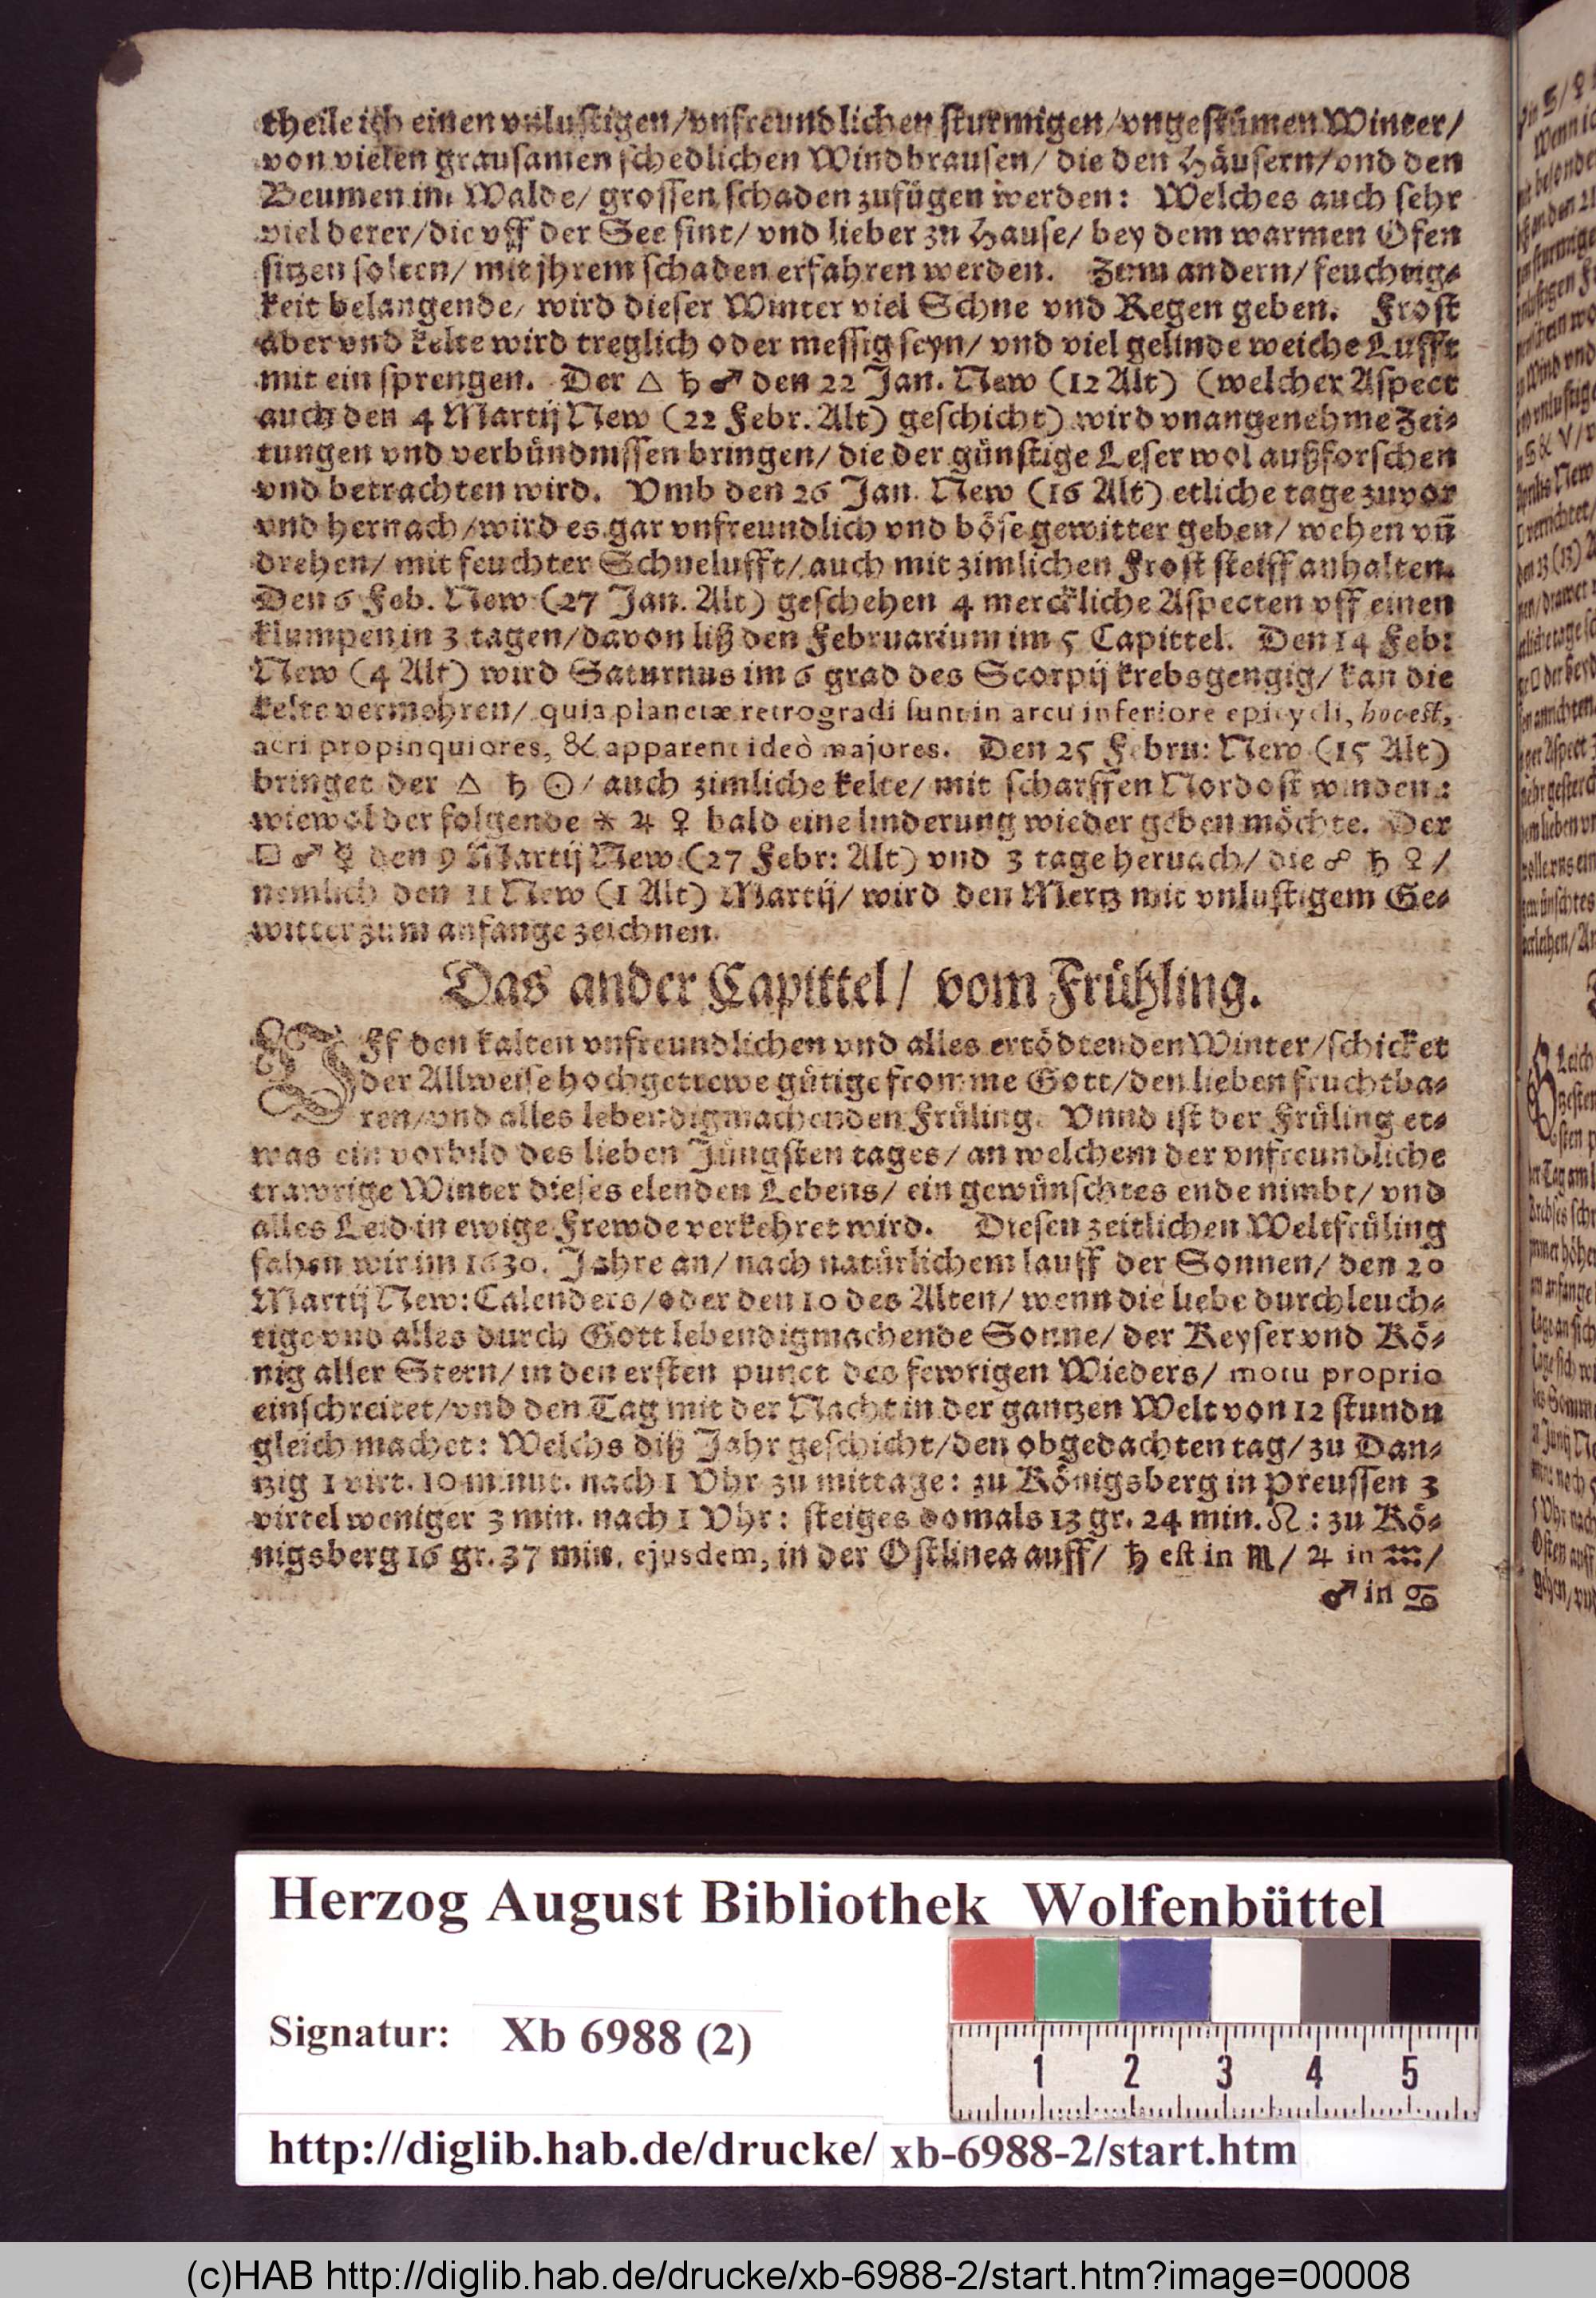 theile ich einen vnlustigen/vnfreundlichen sturmigen/vngestümen Winter/
von vielen grausamen schedlichen Windbrausen/ die den Häusern/vnd den
Beumen im Walde/ grossen schaden zufügen werden: Welches auch sehr
viel derer/die vff der See sint/ vnd lieber zu Hause/ bey dem warmen Ofen
sitzen solten/ mit jhrem schaden erfahren werden. Zum andern/ feuchtig-
keit belangende/ wird dieser Winter viel Schne vnd Regen geben. Frost
aber vnd kelte wird treglich oder messig seyn/ vnd viel gelinde weiche Lufft
mit ein sprengen. Der △ ♄ ♂ den 22 Jan. New (12 Alt) (welcher Aspect
auch den 4 Martij New (22 Febr. Alt) geschicht) wird vnangenehme Zei-
tungen vnd verbündnissen bringen/ die der günstige Leser wol außforschen
vnd betrachten wird. Vmb den 26 Jan. New (16 Alt) etliche tage zuvor
vnd hernach/wird es gar vnfreundlich vnd böse gewitter geben/ wehen vñ
drehen/ mit feuchter Schnelufft/ auch mit zimlichen Frost steiff anhalten.
Den 6 Feb. New (27 Jan. Alt) geschehen 4 merckliche Aspecten vff einen
klumpen in 3 tagen/davon liß den Februarium im 5 Capittel. Den 14 Feb:
New (4 Alt) wird Saturnus im 6 grad des Scorpij krebsgengig/ kan die
kelte vermehren/ quia planetæ retrogradi sunt in arcu inferiore epicycli, hoc est,
acri propinquiores, & apparent ideò majores. Den 25 Febru: New (15 Alt)
bringet der △ ♄ ☉/ auch zimliche kelte/ mit scharffen Nordost winden:
wiewol der folgende ⚹ ♃ ♀ bald eine linderung wieder geben möchte. Der
□ ♂ ☿ den 9 Martij New (27 Febr: Alt) vnd 3 tage hernach/ die ☍ ♄ ♀/
nemlich den 11 New (1 Alt) Martij/ wird den Mertz mit vnlustigem Ge-
witter zum anfange zeichnen.
Das ander Capittel/ vom Frühling.
VFf den kalten vnfreundlichen vnd alles ertödtenden Winter/schicket
der Allweise hochgetrewe gütige fromme Gott/den lieben fruchtba-
ren/vnd alles lebendigmachenden Früling. Vnnd ist der Früling et-
was ein vorbild des lieben Jüngsten tages/ an welchem der vnfreundliche
trawrige Winter dieses elenden Lebens/ ein gewünschtes ende nimbt/ vnd
alles Leid in ewige Frewde verkehret wird. Diesen zeitlichen Weltfrüling
fahen wir im 1630. Jahre an/ nach natürlichem lauff der Sonnen/ den 20
Martij New: Calenders/oder den 10 des Alten/ wenn die liebe durchleuch-
tige vnd alles durch Gott lebendigmachende Sonne/ der Keyser vnd Kö-
nig aller Stern/ in den ersten punct des fewrigen Wieders/ motu proprio
einschreitet/vnd den Tag mit der Nacht in der gantzen Welt von 12 stundn
gleich machet: Welchs diß Jahr geschicht/den obgedachten tag/ zu Dan-
tzig 1 virt. 10 minut. nach 1 Vhr zu mittage: zu Königsberg in Preussen 3
virtel weniger 3 min. nach 1 Vhr: steiges domals 13 gr. 24 min. ♌: zu Kö-
nigsberg 16 gr. 37 min. ejusdem, in der Ostlinea auff/ ♄ est in ♏/ ♃ in ♒/
♂ in ♋
Herzog August Bibliothek Wolfenbüttel
Signatur: Xb 6988 (2)
1 2 3 4 5
http://diglib.hab.de/drucke/ xb-6988-2/start.htm
(c)HAB http://diglib.hab.de/drucke/xb-6988-2/start.htm?image=00008